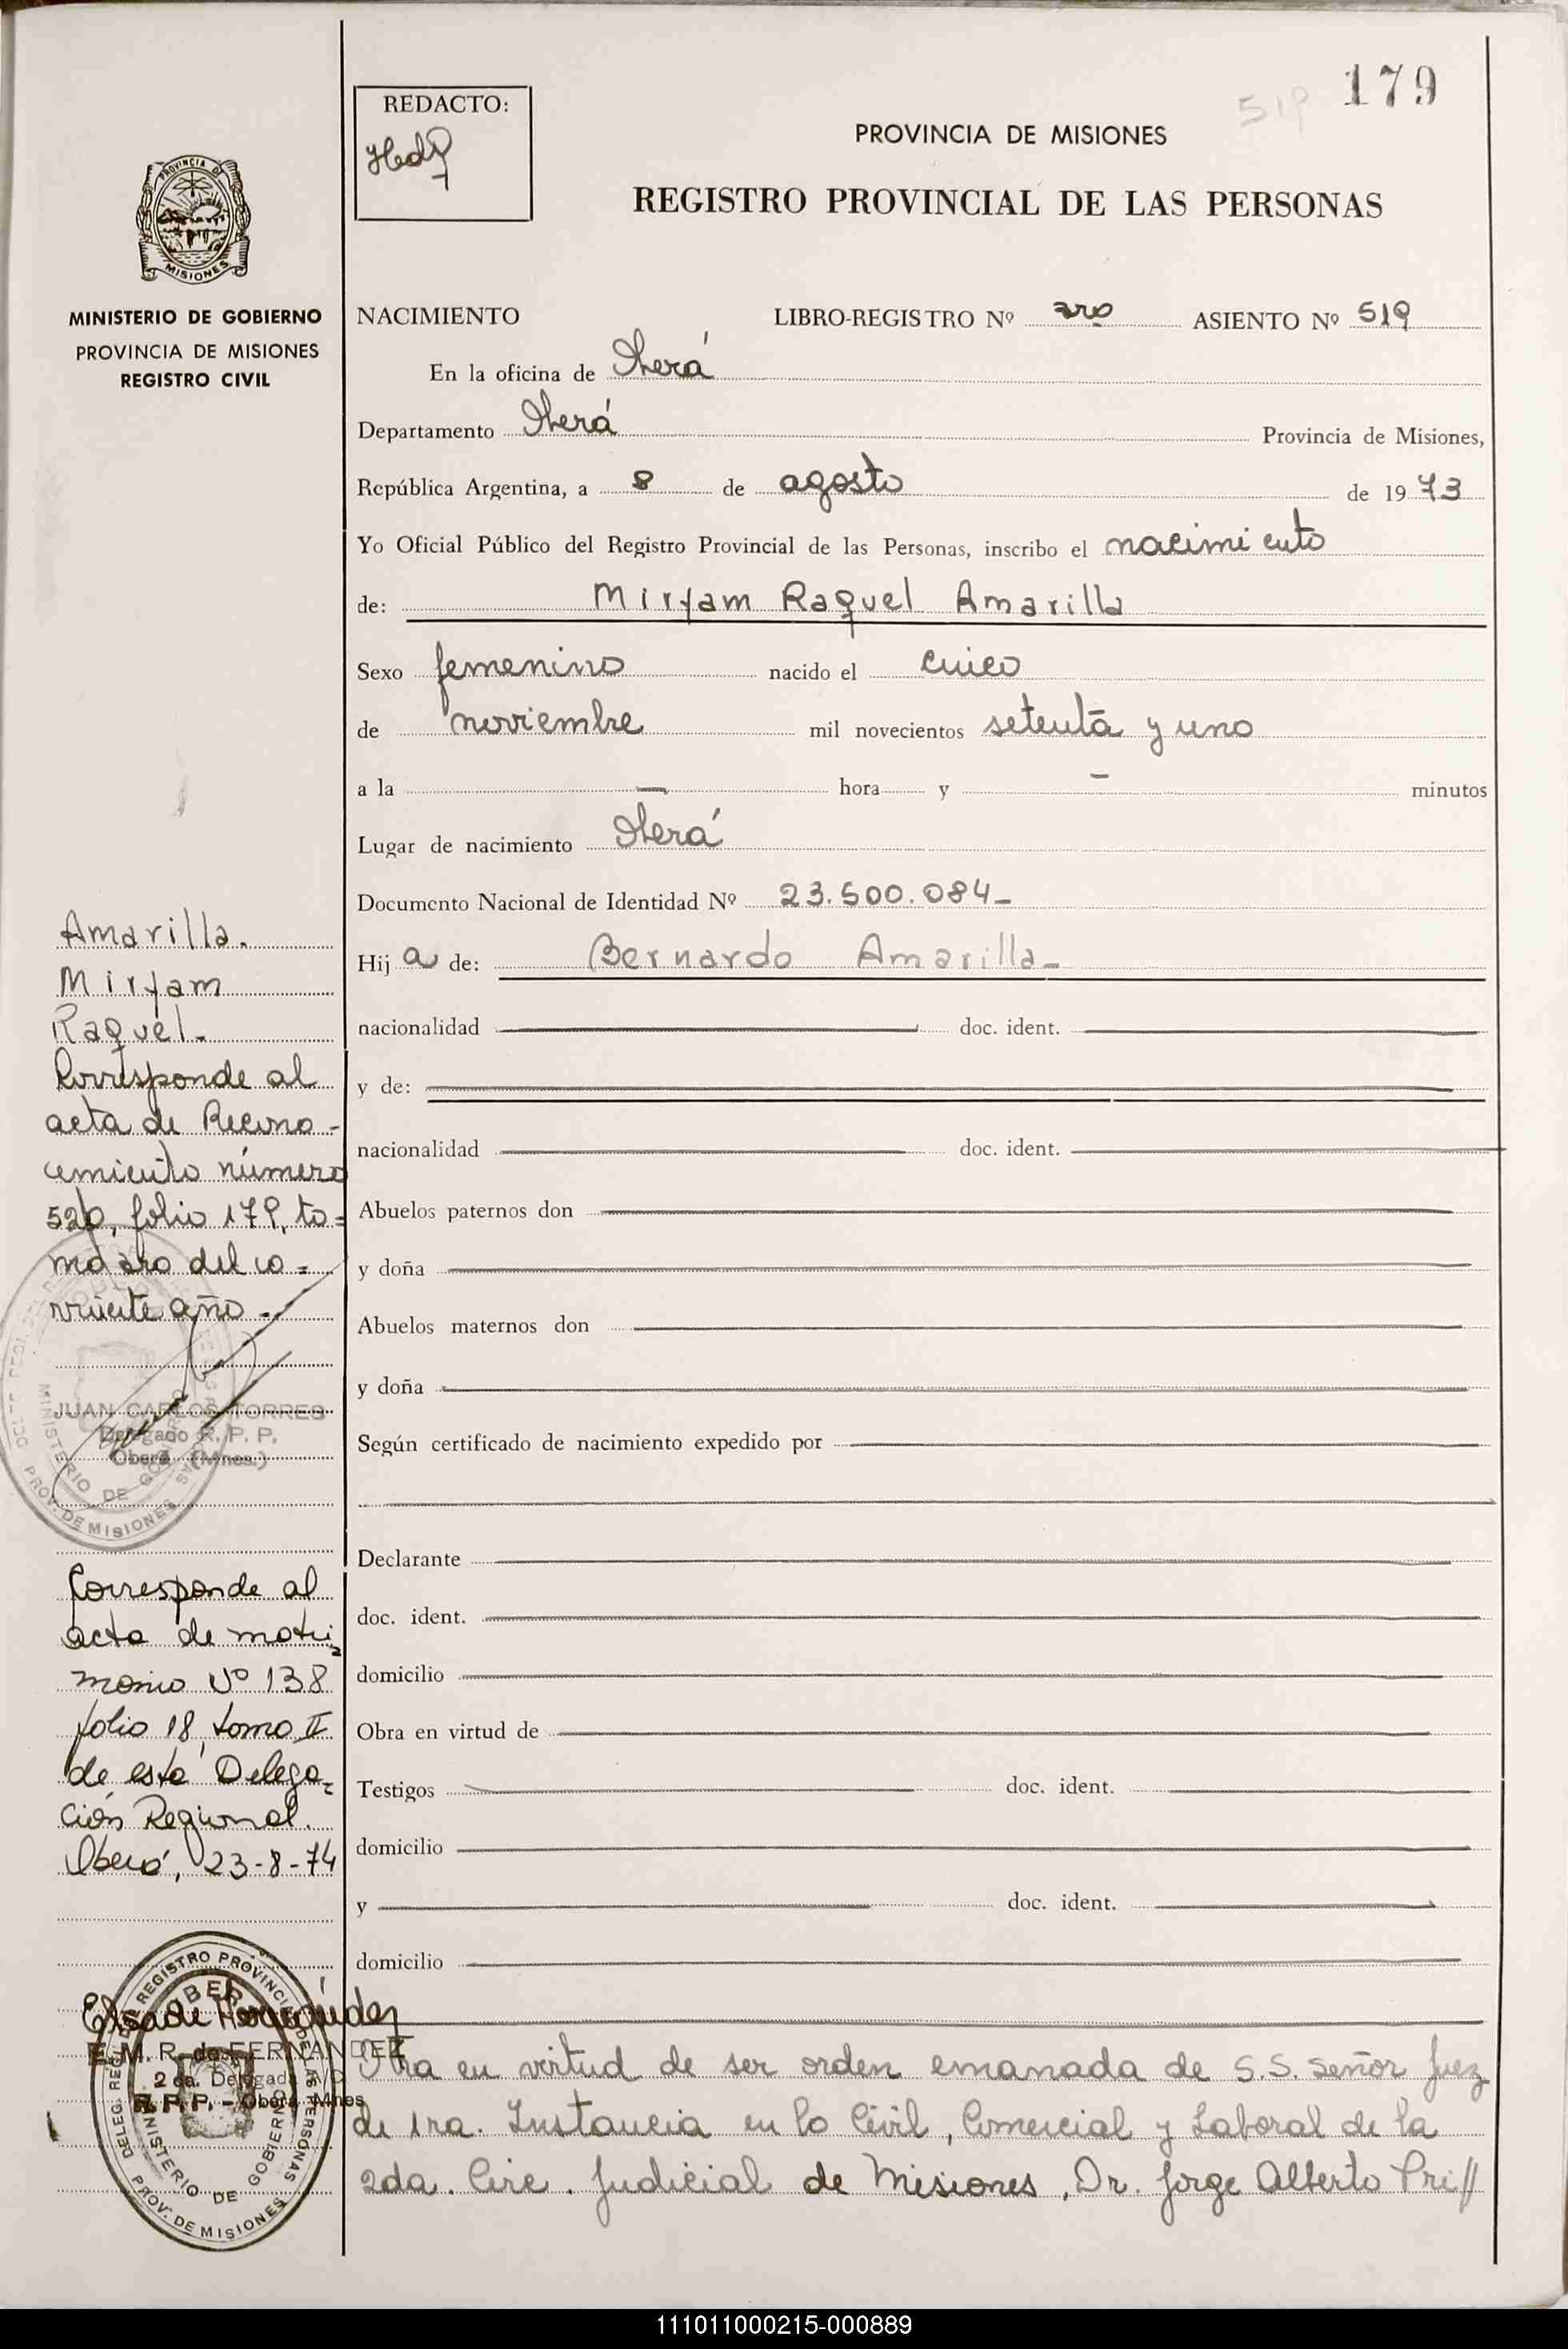 179
519
REDACTO:
PROVINCIA DE MISIONES
REGISTRO PROVINCIAL DE LAS PERSONAS
PROVINCIA DE
MISIONES
MINISTERIO DE GOBIERNO
PROVINCIA DE MISIONES
REGISTRO CIVIL
NACIMIENTO LIBRO-REGISTRO Nº 2ro ASIENTO Nº 519
En la oficina de Oberá
Departamento Oberá Provincia de Misiones,
República Argentina, a 8 de agosto de 1973
Yo Oficial Público del Registro Provincial de las Personas, inscribo el nacimiento
de: Mirjam Raquel Amarilla
Sexo femenino nacido el cinco
de noviembre mil novecientos setenta y uno
a la — hora y — minutos
Lugar de nacimiento Oberá
Documento Nacional de Identidad Nº 23.500.084_
Hija de: Bernardo Amarilla_
nacionalidad doc. ident.
y de:
nacionalidad doc. ident.
Abuelos paternos don
y doña
Abuelos maternos don
y doña
Según certificado de nacimiento expedido por
Declarante
doc. ident.
domicilio
Obra en virtud de
Testigos doc. ident.
domicilio
y doc. ident.
domicilio
Obra en virtud de ser orden emanada de S.S. Señor Juez
de 1ra. Instancia en lo Civil, Comercial y Laboral de la
2da. Circ. Judicial de Misiones, Dr. Jorge Alberto Pri//
Amarilla.
Mirjam
Raquel._
Corresponde al
acta de Recono-
cimiento número
520, folio 179, to=
mo 2ro del co=
rriente año.-
JUAN CARLOS TORRES
Delegado R. P. P.
Oberá (Mnes.)
MINISTERIO DE GOBIERNO
PROV. DE MISIONES
Corresponde al
acta de matri=
monio Nº 138
folio 18, tomo II
de esta Delega=
ción Regional.
Oberá, 23-8-74
E. M. R. de FERNANDEZ
2da. Delegada
R. P. P. - Oberá Mnes
DELEG. REG. DEL REGISTRO PROVINCIAL DE LAS PERSONAS
OBERA
MINISTERIO DE GOBIERNO
PROV. DE MISIONES
111011000215-000889